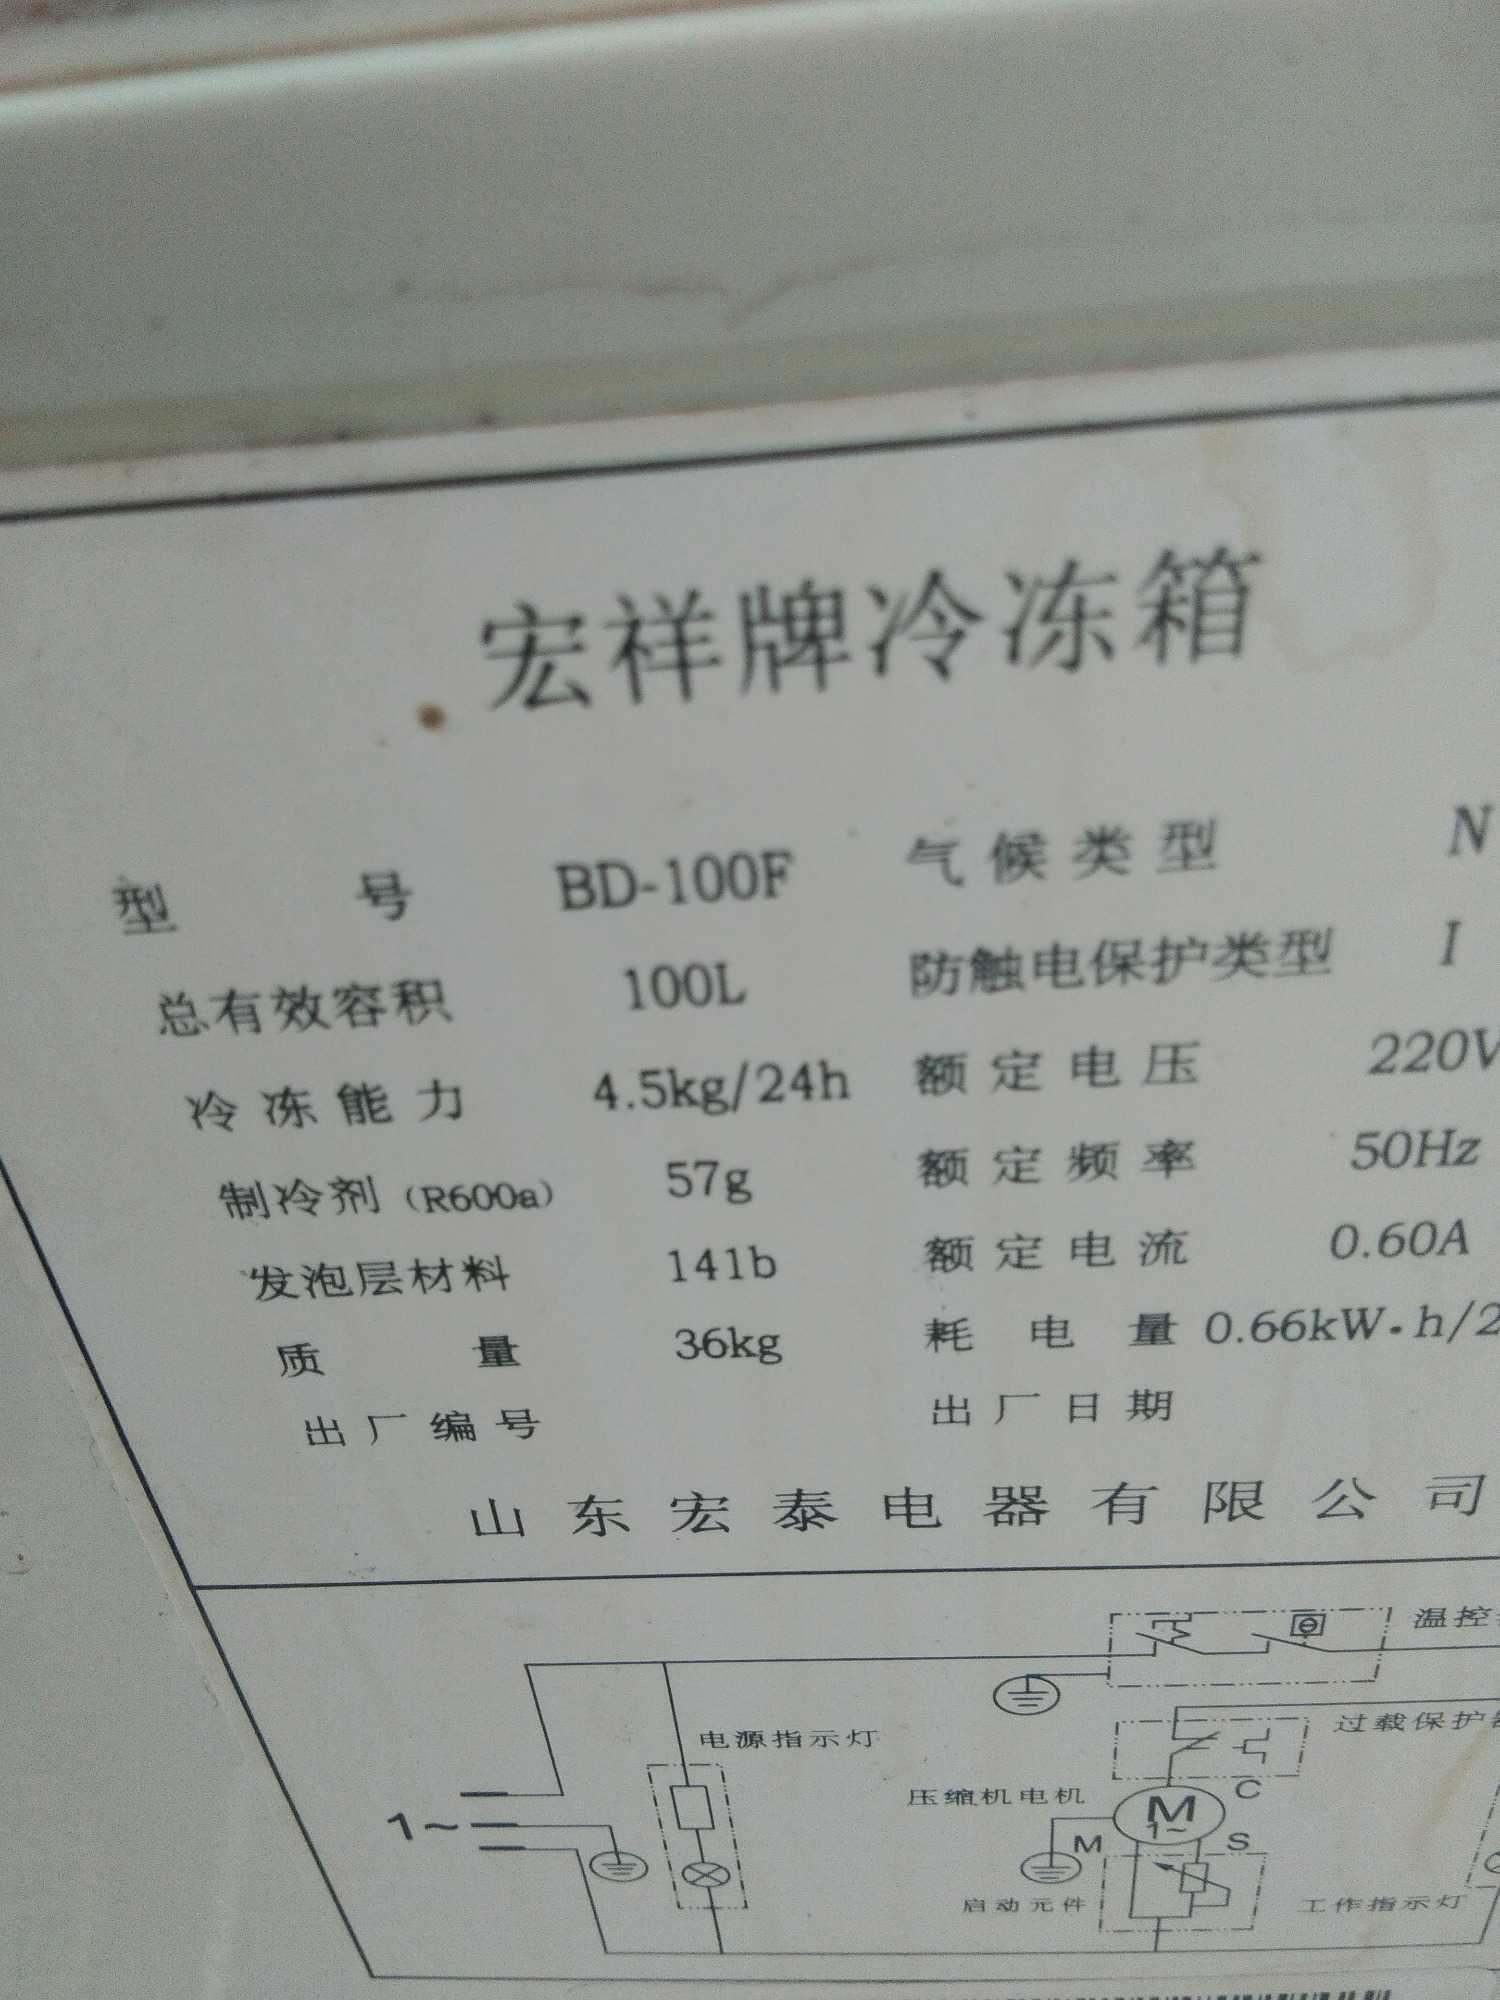 宏祥牌冷冻箱
型 号 BD-100F 气候类型 N
总有效容积 100L 防触电保护类型 I
冷冻能力 4.5kg/24h 额定电压 220V
制冷剂(R600a) 57g 额定频率 50Hz
发泡层材料 141b 额定电流 0.60A
质 量 36kg 耗电量 0.66kW·h/2
出厂编号 出厂日期
山东宏泰电器有限公司
温控
电源指示灯 过载保护器
压缩机电机 M 1~ C
1~ M S
启动元件 工作指示灯